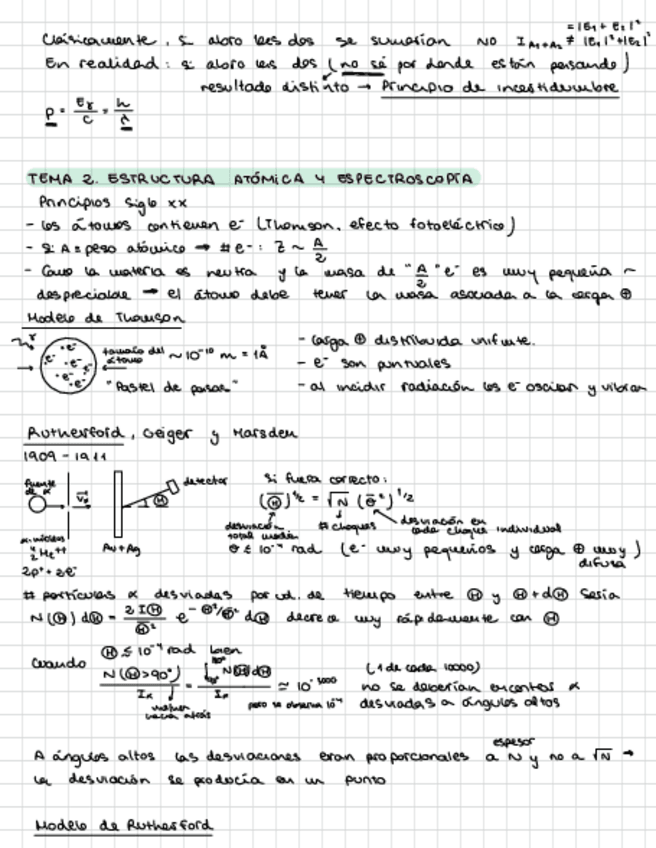 = |E₁ + E₂|²
Clásicamente, si abro las dos se sumarían NO I_{A1+A2} ≠ |E₁|²+|E₂|²
En realidad: si abro las dos (no sé por donde están pasando)
resultado distinto → Principio de incertidumbre
p = Eγ/c = h/λ
TEMA 2. ESTRUCTURA ATÓMICA Y ESPECTROSCOPÍA
Principios siglo XX
- Los átomos contienen e⁻ (Thomson, efecto fotoeléctrico)
- Si A = peso atómico → # e⁻: Z ~ A/2
- Como la materia es neutra y la masa de "A/2" e⁻ es muy pequeña ~
despreciable → el átomo debe tener la masa asociada a la carga ⊕
Modelo de Thomson
tamaño del átomo ~ 10⁻¹⁰ m = 1Å
"Pastel de pasas"
- carga ⊕ distribuida unifmte.
- e⁻ son puntuales
- al incidir radiación los e⁻ oscilan y vibran
Rutherford, Geiger y Marsden
1909 - 1911
fuente de α
detector
Θ
Au + Ag
⁴₂He⁺⁺
2p⁺ + 2e⁻
Si fuera correcto:
(Θ̄²)^{1/2} = √N (θ̄²)^{1/2}
desviación total media
# choques
desviación en cada choque individual
θ ≤ 10⁻⁴ rad (e⁻ muy pequeños y carga ⊕ muy difusa)
# partículas α desviadas por ud. de tiempo entre Θ y Θ+dΘ sería
N(Θ) dΘ = 2IΘ/Θ̄² e^{-Θ²/Θ̄²} dΘ decrece muy rápidamente con Θ
Cuando Θ ≤ 10⁻⁴ rad bien
N(Θ>90°)/Iα = ∫_{90°}^{180°} N(Θ)dΘ/Iα ≃ 10⁻³⁵⁰⁰
vuelven hacia atrás
pero se observa 10⁻⁴
(1 de cada 10000)
no se deberían encontrar α
desviadas a ángulos altos
A ángulos altos las desviaciones eran proporcionales a N y no a √N →
espesor
la desviación se producía en un punto
Modelo de Rutherford